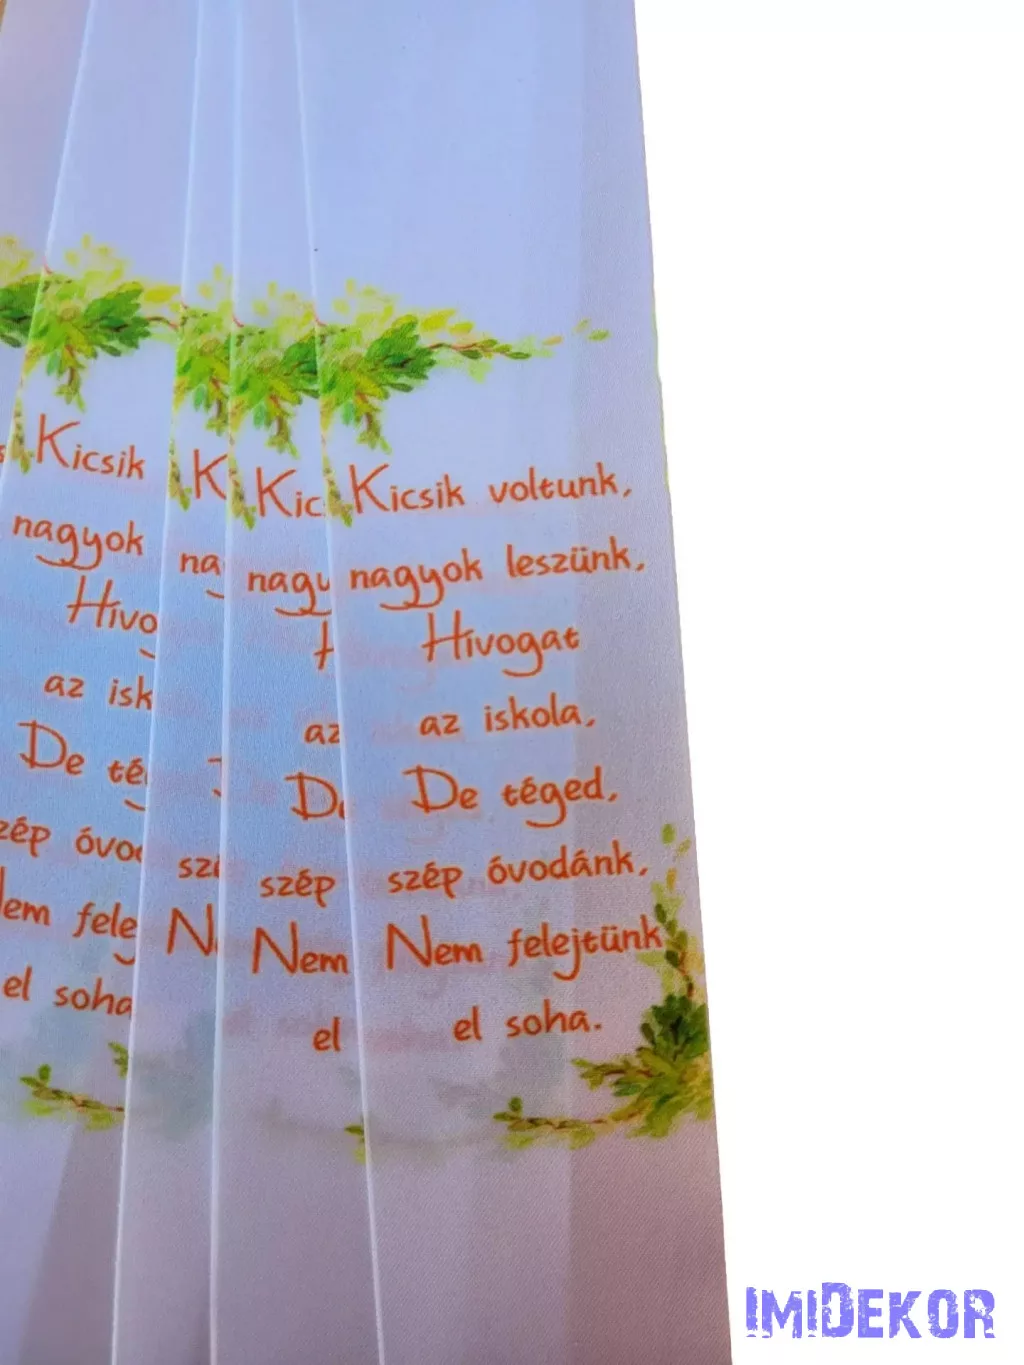 Kicsik voltunk,
nagyok leszünk,
Hívogat
az iskola,
De téged,
szép óvodánk,
Nem felejtünk
el soha.
Kicsik
nagyok
Hívo
az isk
De tég
szép óvod
Nem fele
el soha
K
na
szé
N
Kic
nagy
H
az
De
szép
Nem
el
IMIDEKOR